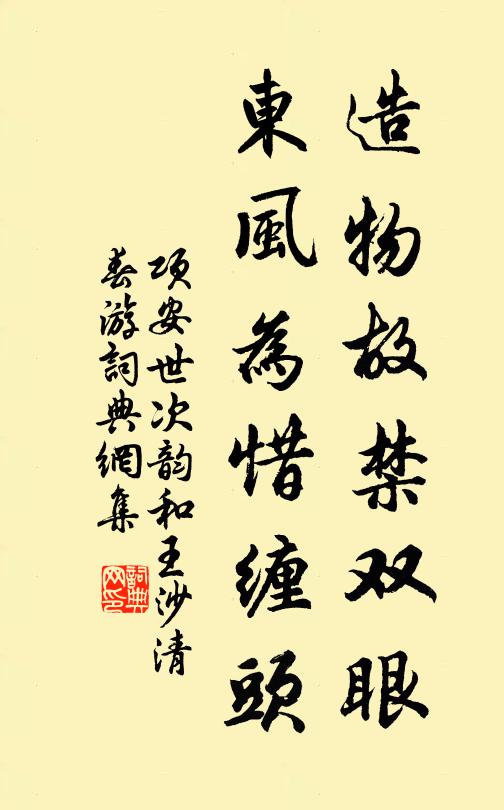 造物故禁双眼
東風為惜纏頭
项安世次韵和王沙清
春游詞典網集
詞典
网印